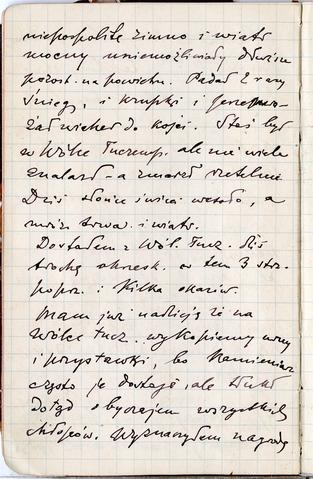 niepospolite zimno i wiatr
mocny uniemożliwiały dłuższe
pozost. na powietrzu. Padał 2 razy
śnieg, i krupki i przejmo-
wał wicher do kości. Staś był
w Wólce Tuczemp. ale nie wiele
znalazł – a zmarzł rzetelnie
Dziś słońce świeci wesoło, a
mróz trwa i wiatr.
Dostałem z Wól. Tucz. dziś
trochę skorek. w tem 3 str.
popr. i kilka okazów.
Mam już nadzieję że na
Wólce Tucz. wykopiemy urny
i przystawki, bo Kamieniarz
często je dostaje, ale tłukł
dotąd obyczajem wszystkich
chłopów. Wyznaczyłem nagrodę